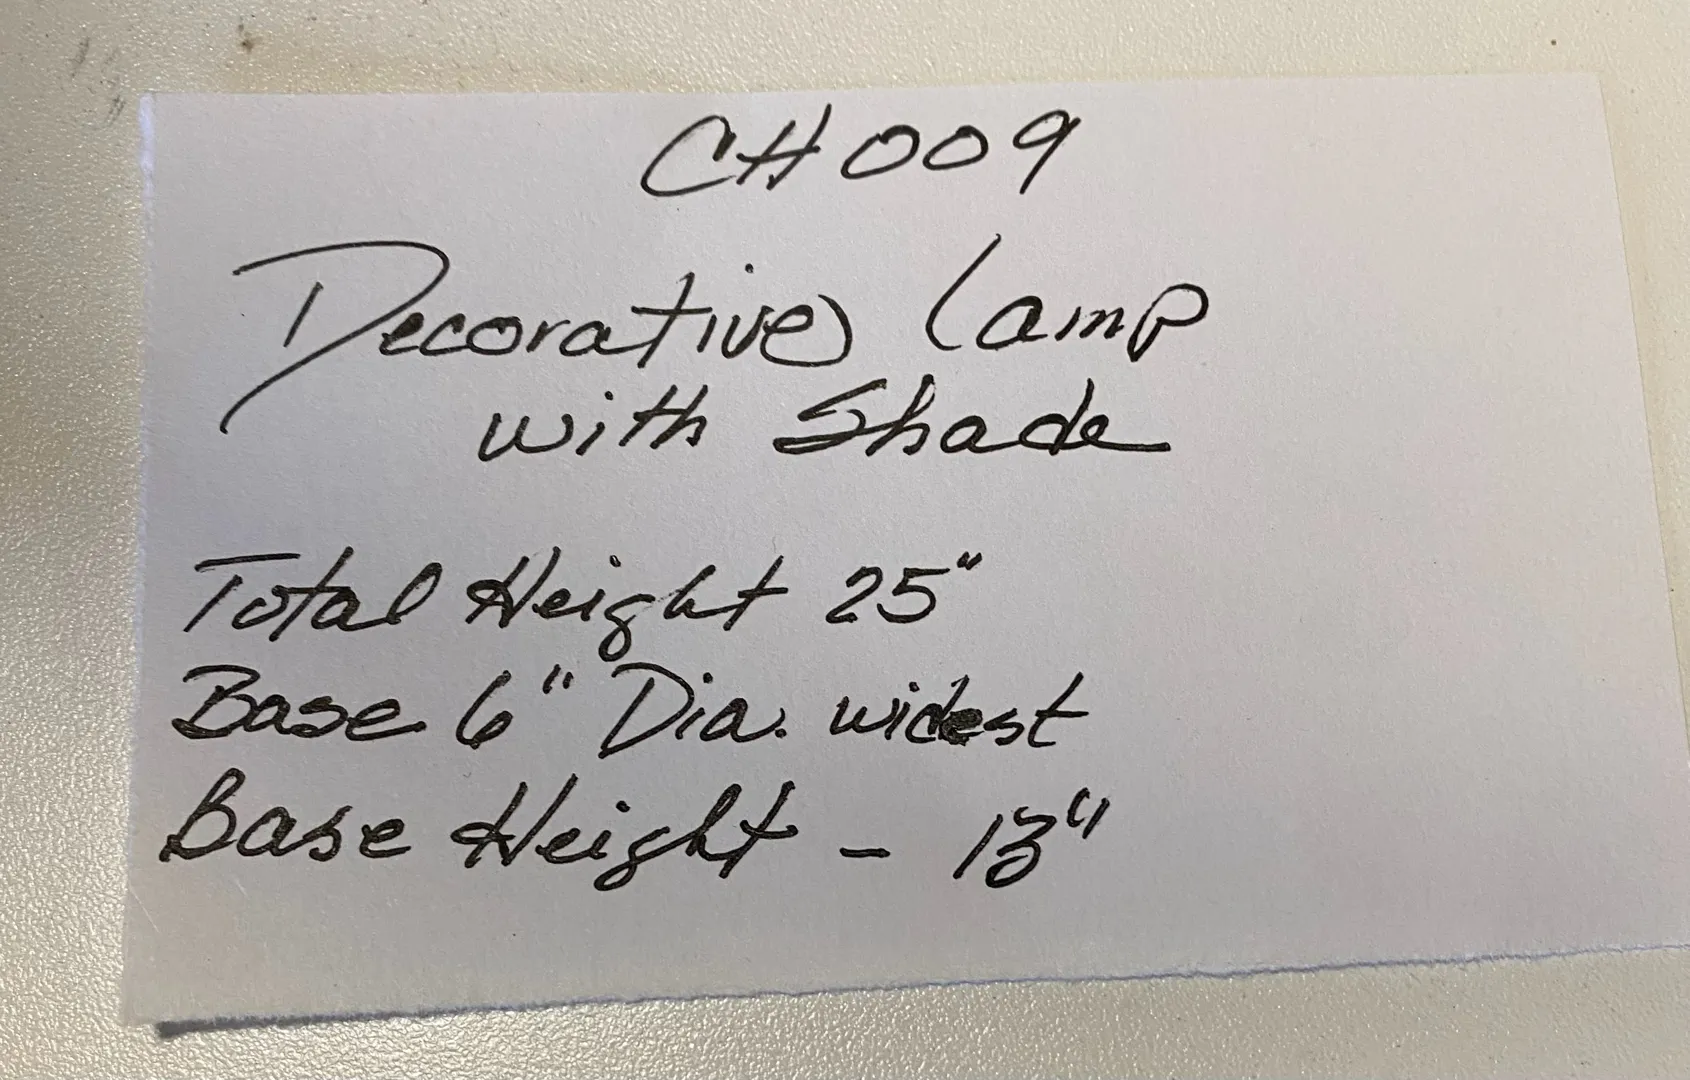 CH009
Decorative Lamp
with Shade
Total Height 25"
Base 6" Dia. widest
Base Height - 13"